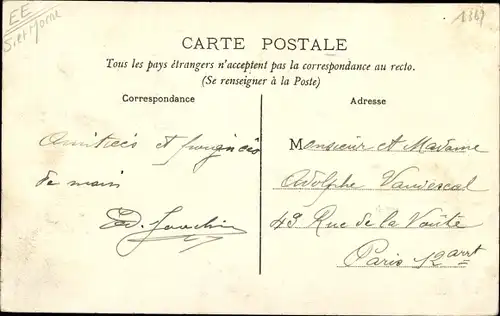 EE
1347
CARTE POSTALE
Tous les pays étrangers n'acceptent pas la correspondance au recto.
(Se renseigner à la Poste)
Correspondance
Adresse
Amitiés et poignées
de main
Ed.
Monsieur et Madame
Adolphe
49 Rue de la Voûte
Paris 12 arrt